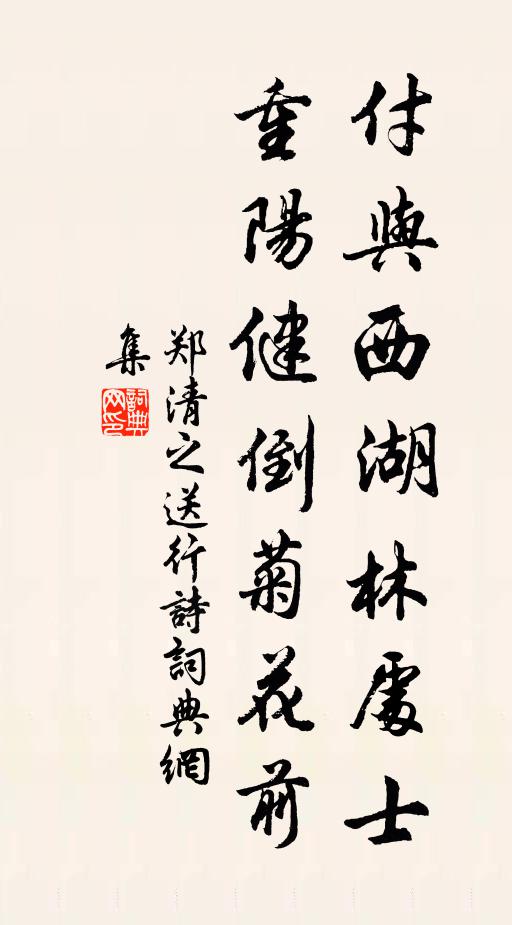 付與西湖林處士
重陽健倒菊花前
郑清之送行詩詞典網
集
詞典网印